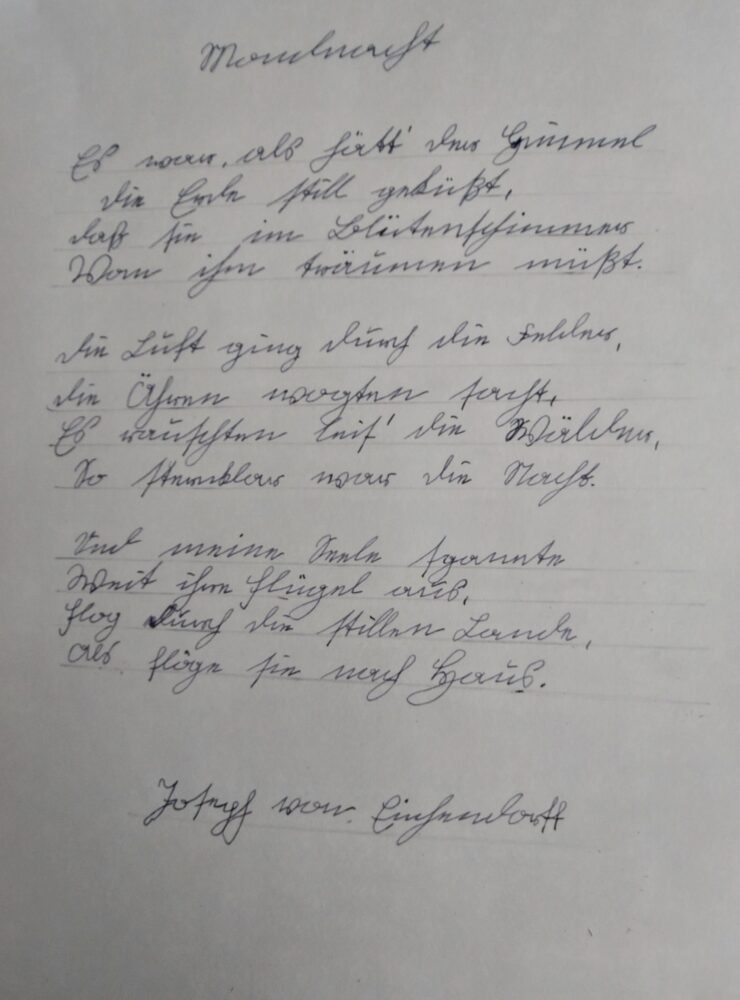 Mondnacht
Es war, als hätt' der Himmel
die Erde still geküßt,
daß sie im Blütenschimmer
Von ihm träumen müßt.
die Luft ging durch die Felder,
die Ähren wogten sacht,
Es rauschten leis' die Wälder,
So sternklar war die Nacht.
Und meine Seele spannte
Weit ihre Flügel aus,
flog durch die stillen Lande,
als flöge sie nach Haus.
Joseph von Eichendorff